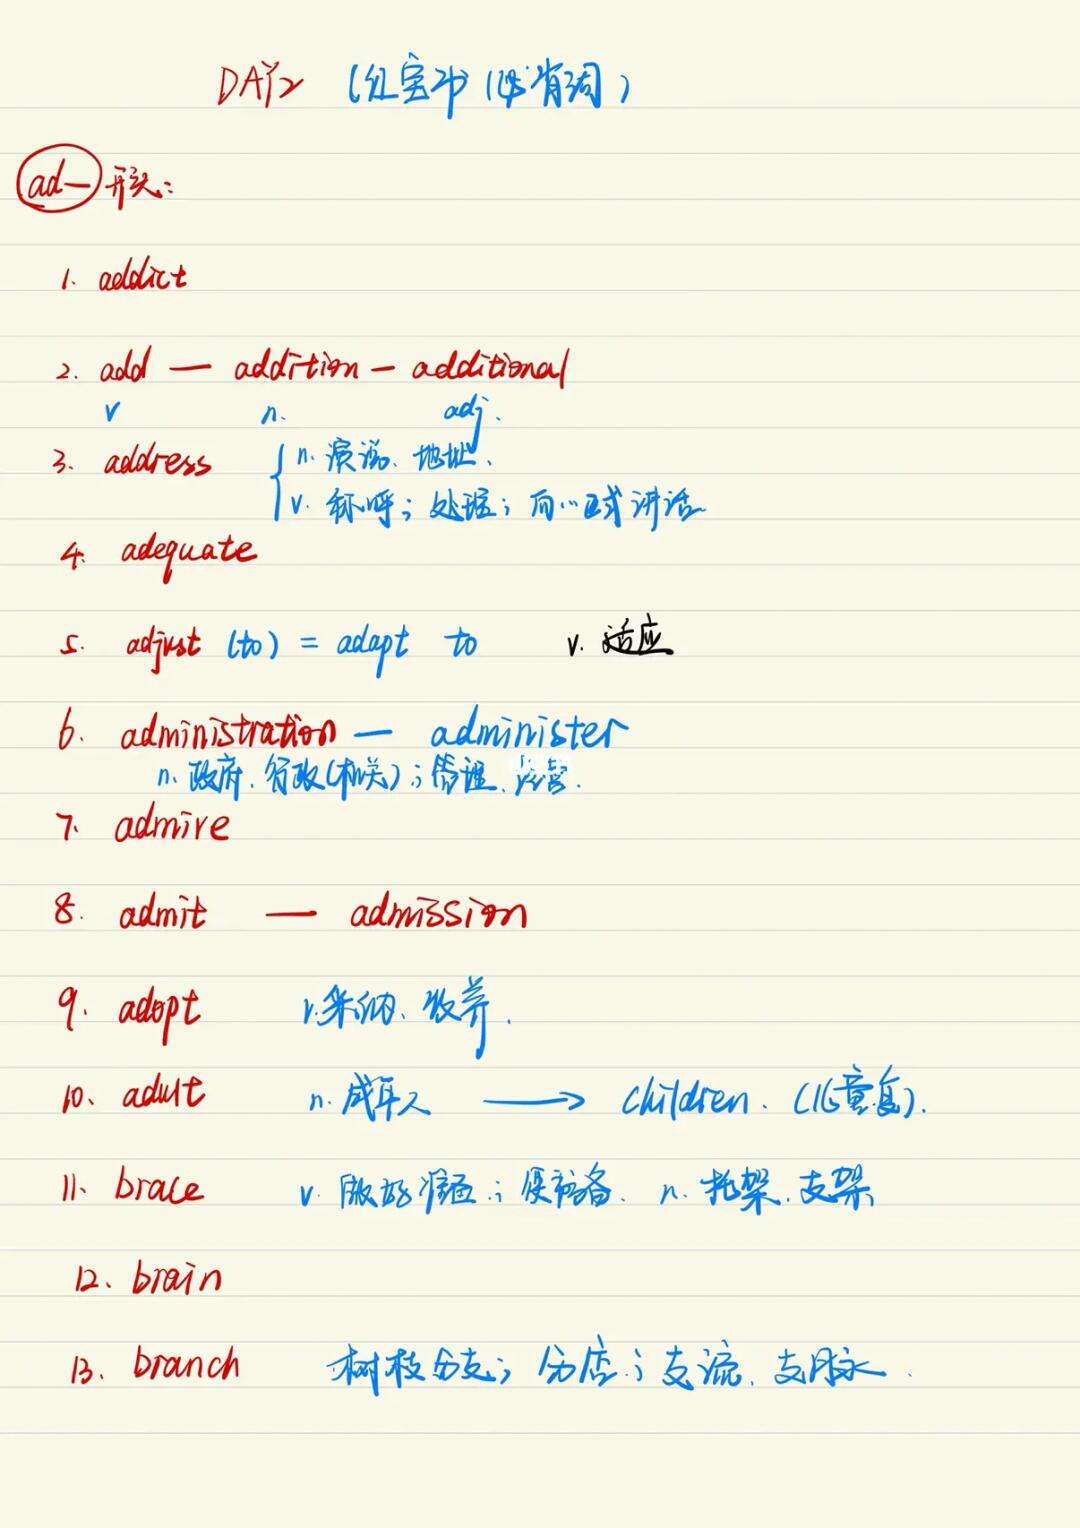 DAY2 (红宝书 必省词)
ad— 开头:
1. addict
2. add — addition — additional
v n. adj.
3. address { n. 演说、地址、
v. 称呼; 处理; 向…正式讲话
4. adequate
5. adjust (to) = adapt to v. 适应
6. administration — administer
n. 政府、行政(机关); 管理、经营.
7. admire
8. admit — admission
9. adopt v. 采纳、收养.
10. adult n. 成年人 → children. (儿童复).
11. brace v. 做好准备; 使防备. n. 托架、支架
12. brain
13. branch 树枝分支; 分店; 支流、支脉.